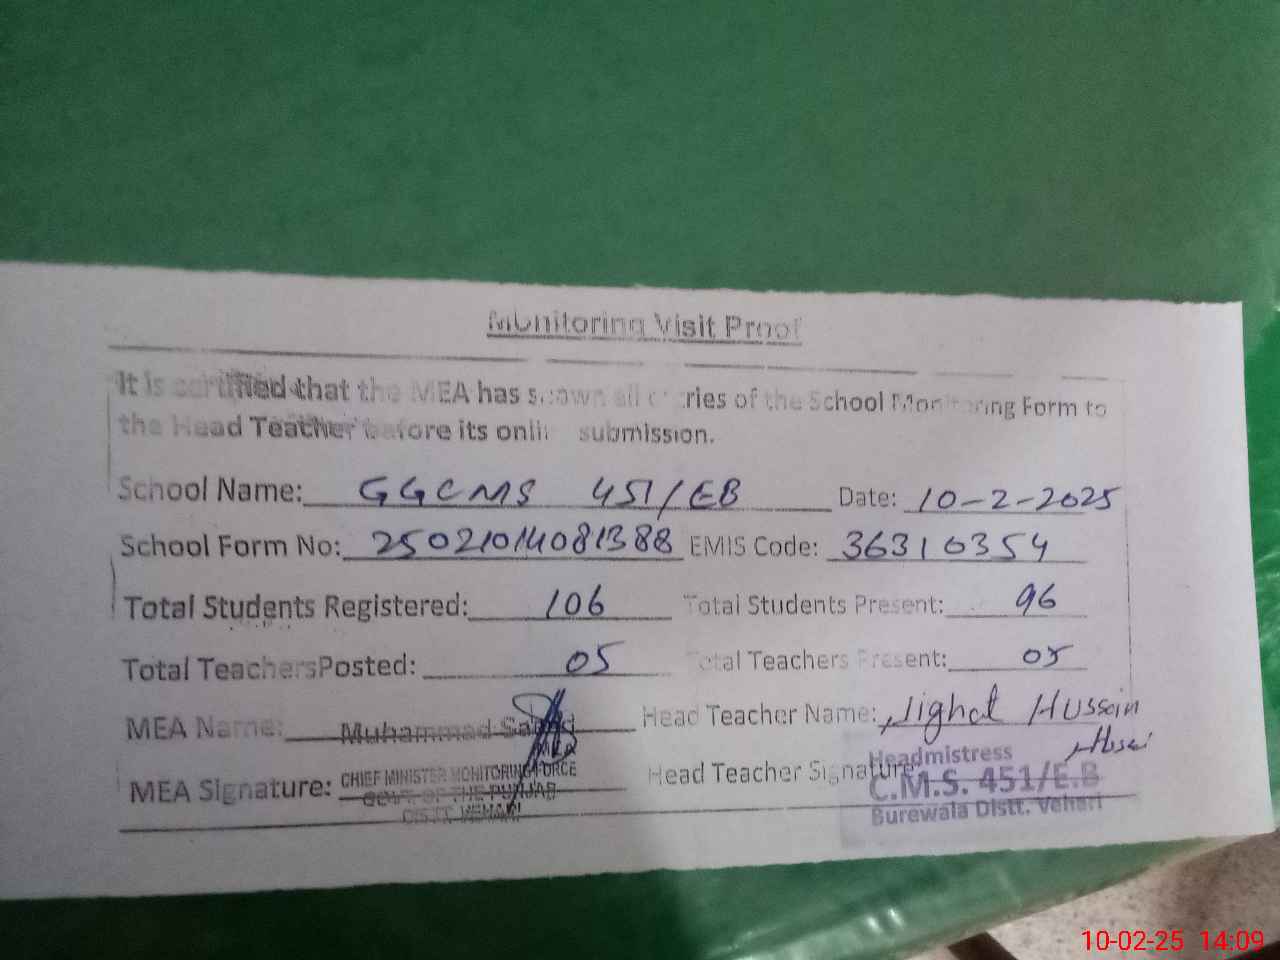 Monitoring Visit Proof
It is certified that the MEA has shown all entries of the School Monitoring Form to
the Head Teacher before its online submission.
School Name: GGCMS 451/EB Date: 10-2-2025
School Form No: 25021014081388 EMIS Code: 36310354
Total Students Registered: 106 Total Students Present: 96
Total Teachers Posted: 05 Total Teachers Present: 05
MEA Name: Muhammad Head Teacher Name: Hussain
MEA
MEA Signature: CHIEF MINISTER MONITORING FORCE Head Teacher Signature
GOVT. OF THE PUNJAB
DISTT. VEHARI
Headmistress
C.M.S. 451/E.B
Burewala Distt. Vehari
10-02-25 14:09